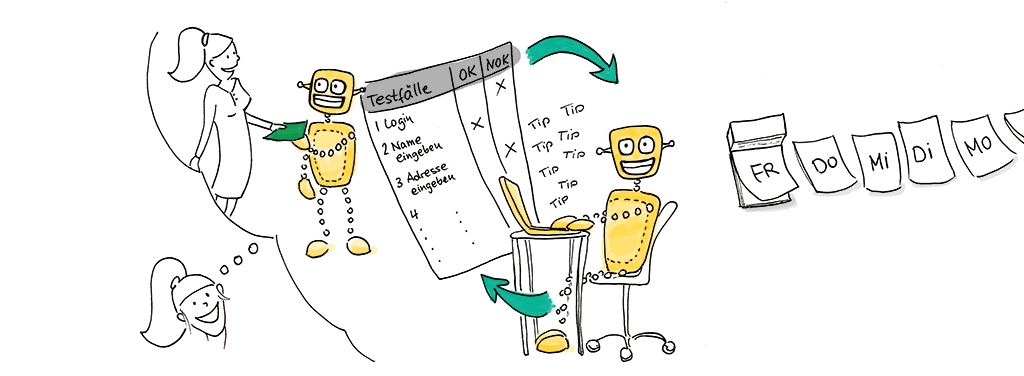 Testfälle OK NOK
1 Login X
2 Name X
eingeben
3 Adresse X
eingeben
4
Tip Tip
Tip Tip
Tip
Tip
Tip
Tip
FR DO MI DI MO